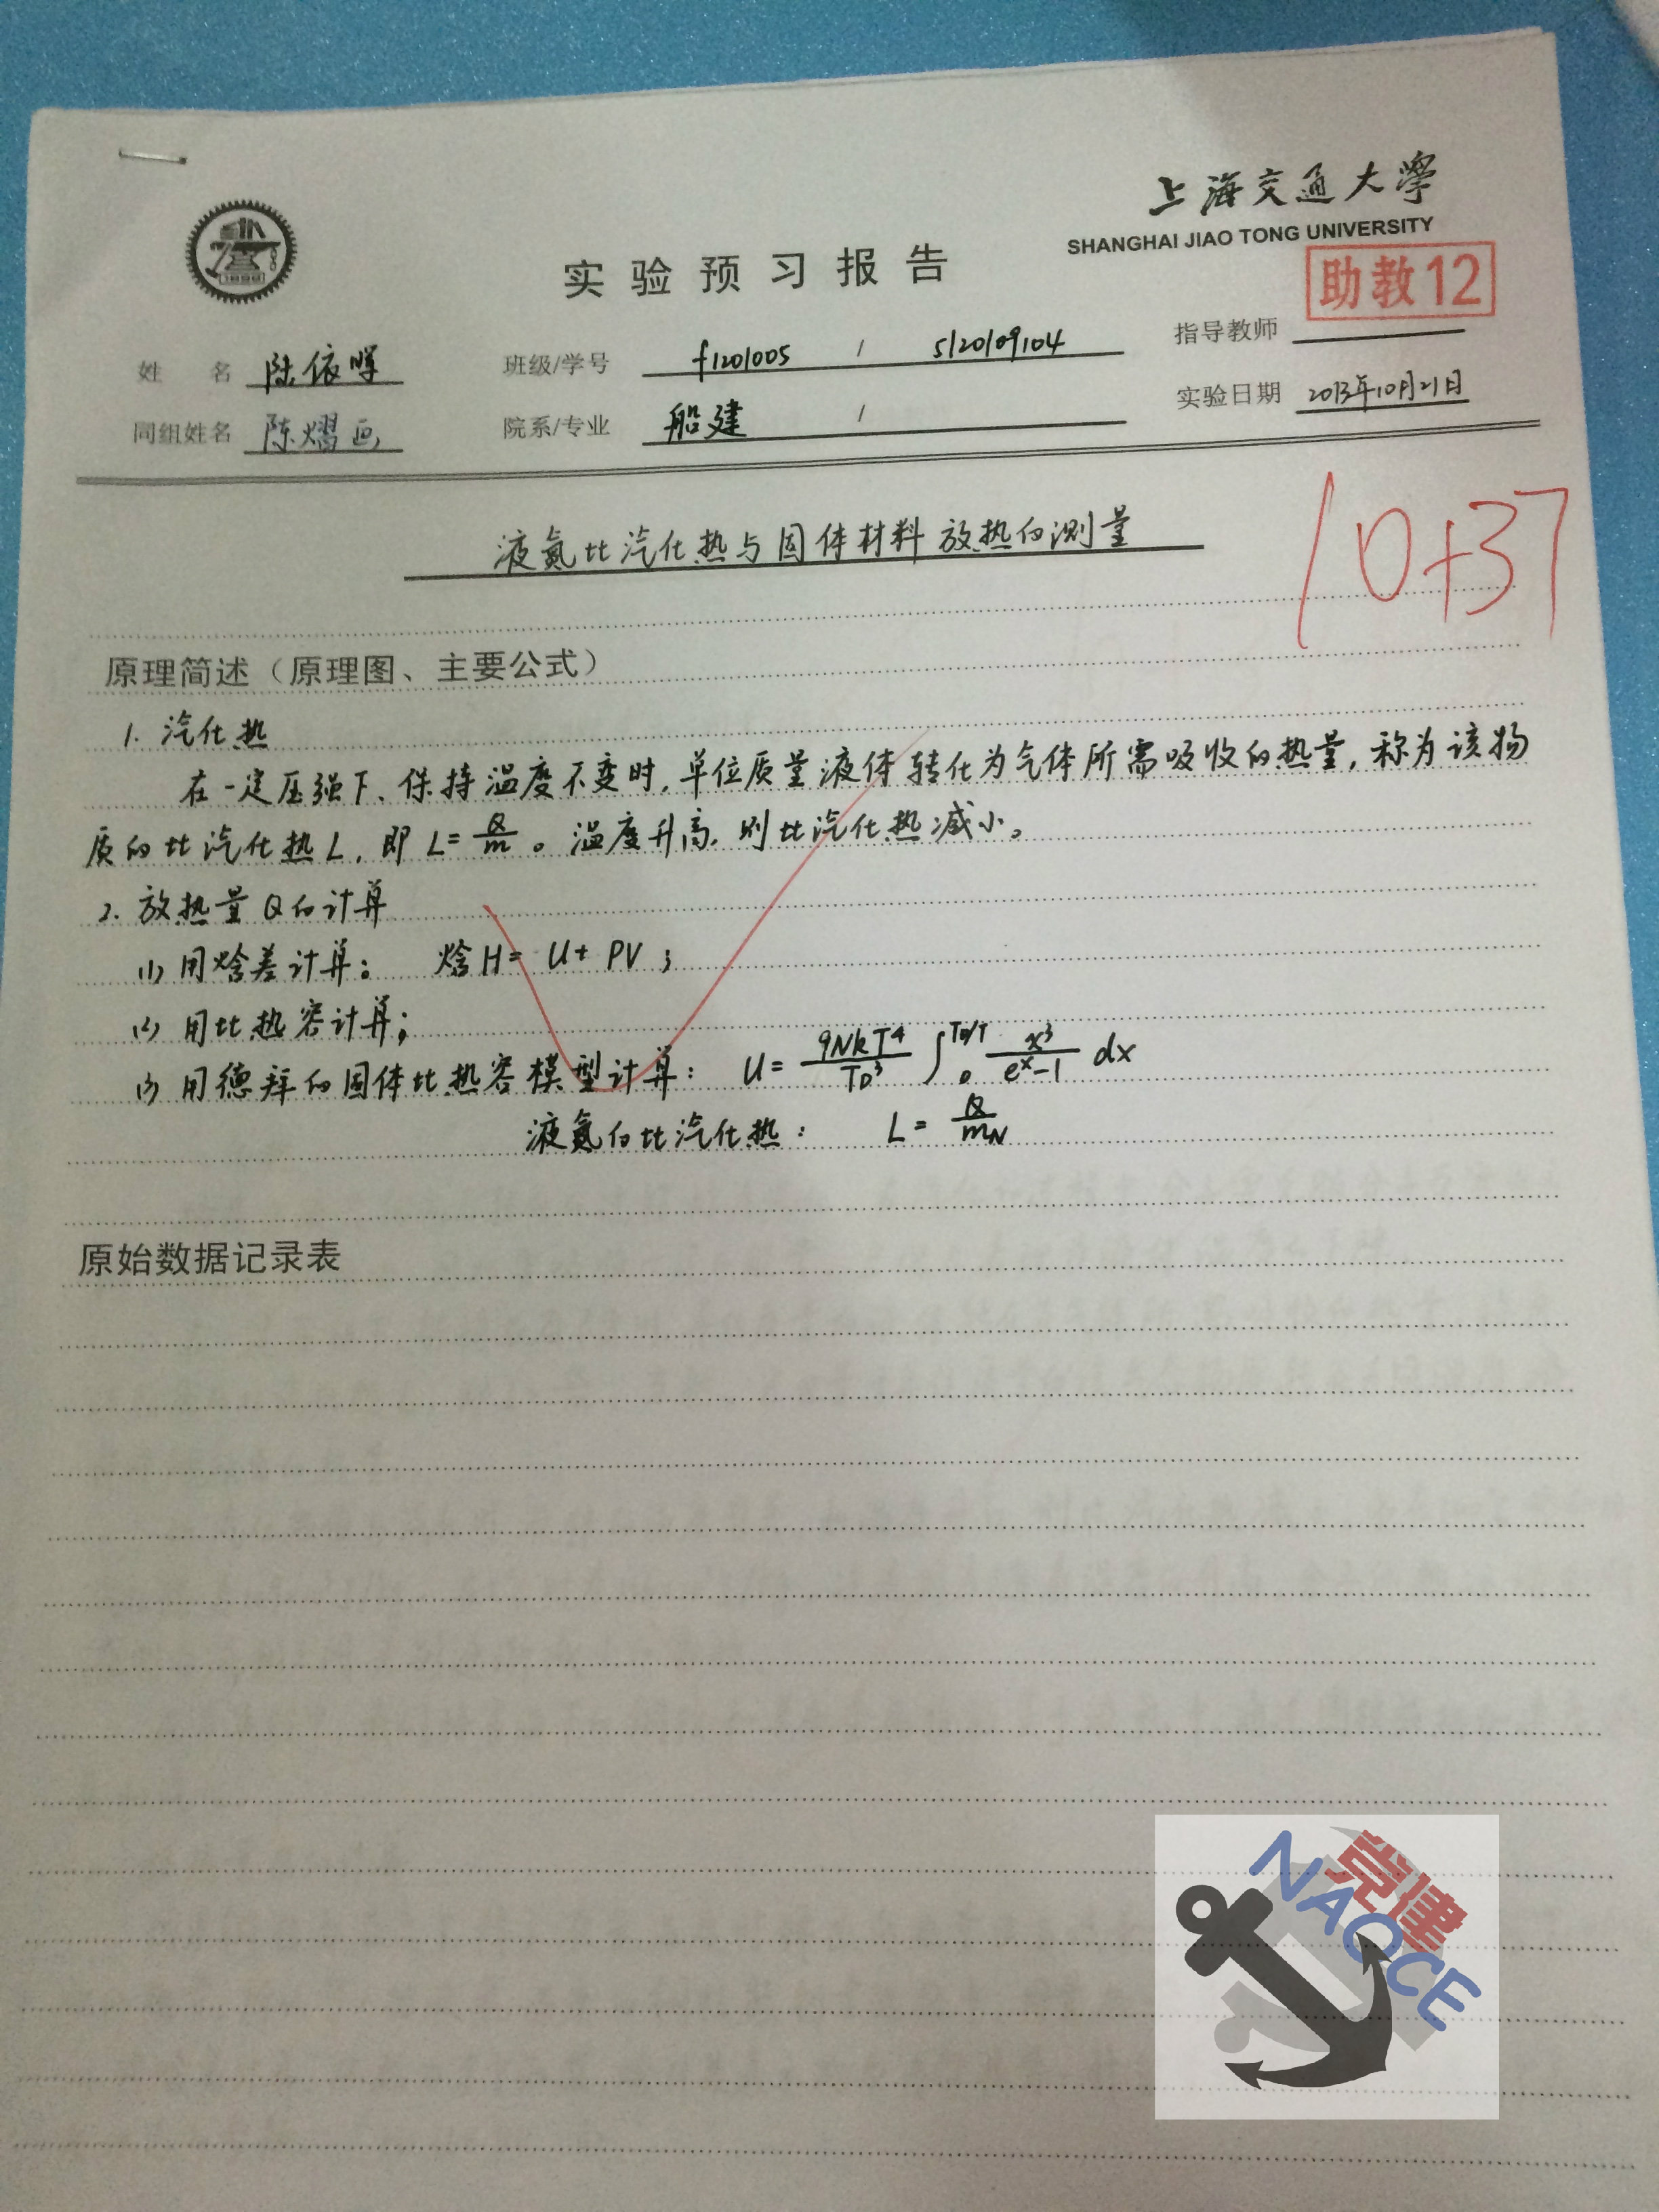 上海交通大學
SHANGHAI JIAO TONG UNIVERSITY
实验预习报告
助教12
姓 名 陈依晖 班级/学号 f1201005 / 5120109104 指导教师
同组姓名 陈熠画 院系/专业 船建 / 实验日期 2013年10月21日
液氮比汽化热与固体材料放热的测量
10+37
原理简述（原理图、主要公式）
1. 汽化热
在一定压强下、保持温度不变时,单位质量液体转化为气体所需吸收的热量,称为该物
质的比汽化热L,即 L=Q/m。温度升高,则比汽化热减小。
2. 放热量Q的计算
(1) 用焓差计算: 焓H= U+ PV ;
(2) 用比热容计算;
(3) 用德拜的固体比热容模型计算: U= 9NkT⁴/T_D³ ∫₀^(T_D/T) x³/(eˣ-1) dx
液氮的比汽化热: L= Q/m_N
原始数据记录表
党建
NAOCE